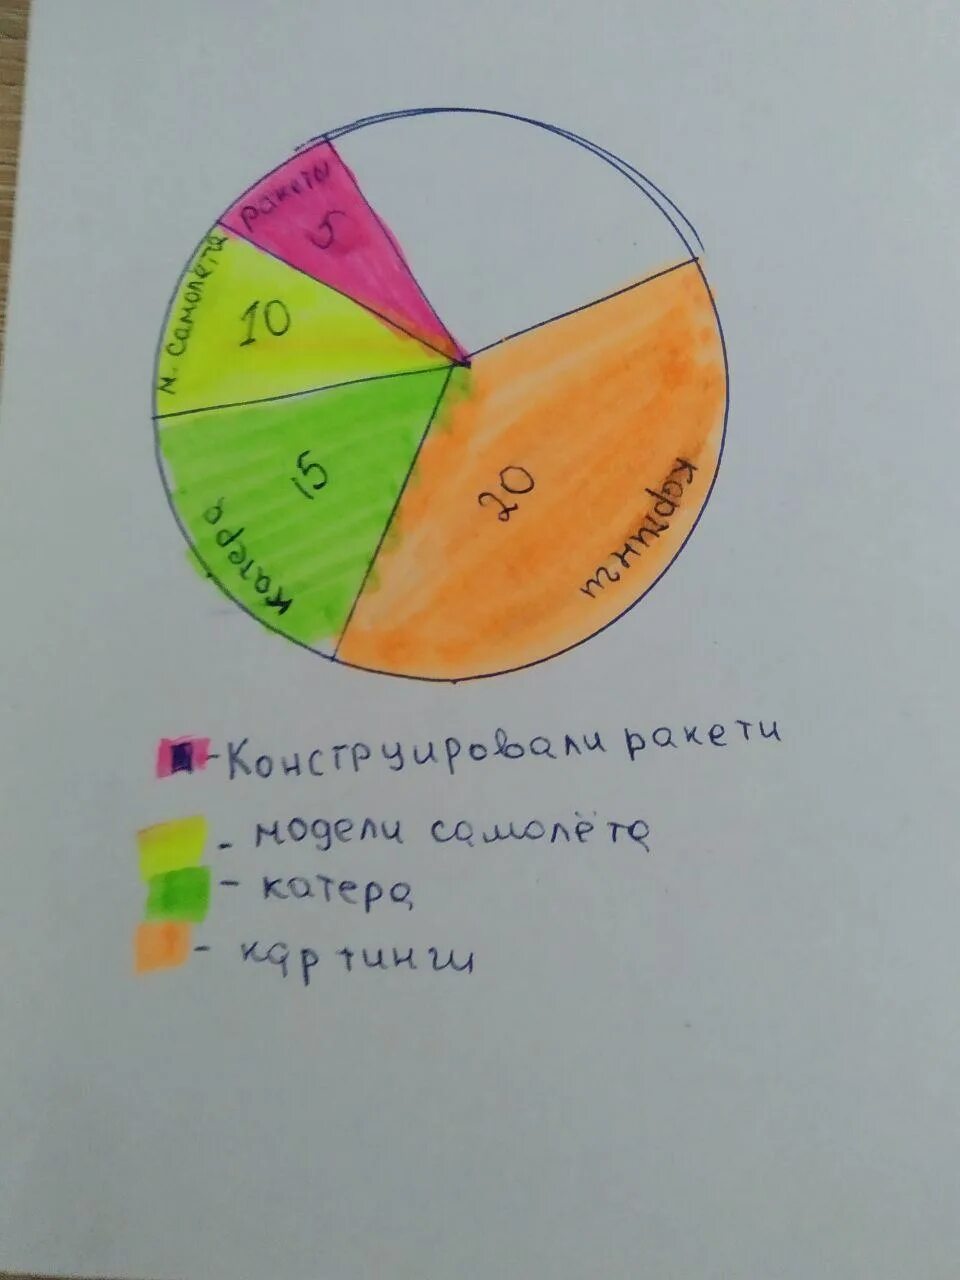 ракеты
5
м. самолёта
10
15
катера
20
картинги
-Конструировали ракети
- модели самолёта
- катера
- картинги